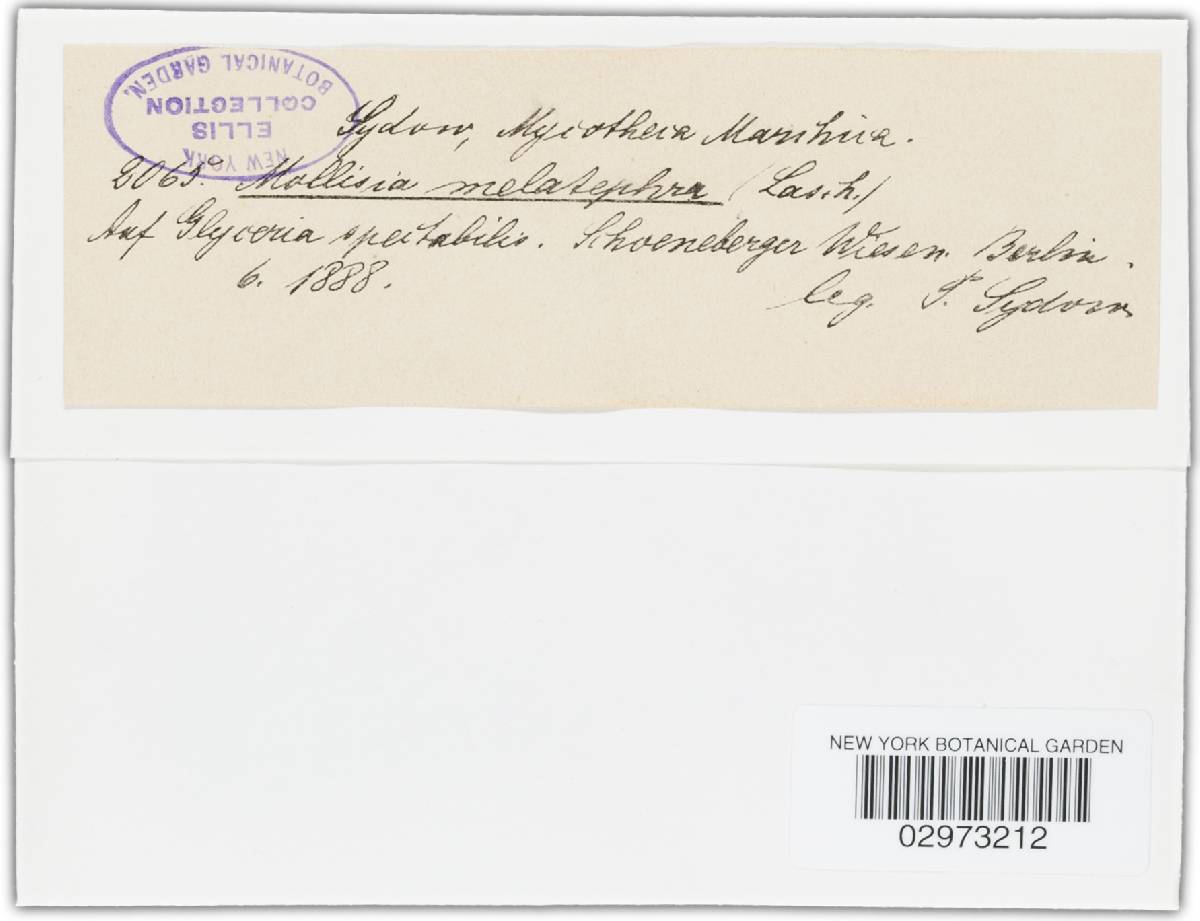 NEW YORK
ELLIS
COLLECTION
BOTANICAL GARDEN.
Sydow, Mycotheca Marchica.
2065. Mollisia melatephra (Lasch.)
Auf Glyceria spectabilis. Schoeneberger Wiesen. Berlin.
6. 1888.
leg. P. Sydow
NEW YORK BOTANICAL GARDEN
02973212